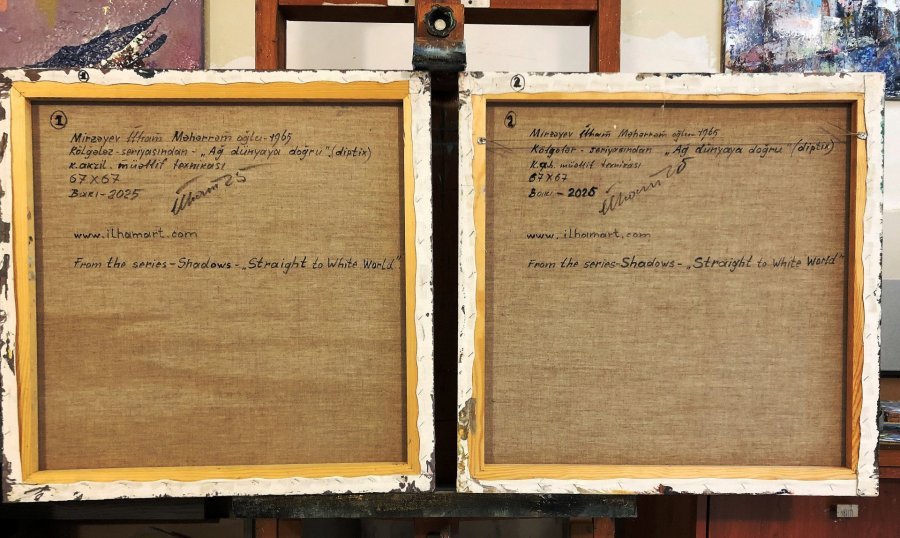 1
1
Mirzəyev İlham Məhərrəm oğlu-1965
Kölgələr-seriyasından - „Ağ dünyaya doğru" (diptix)
k. akril. müəllif texnikası
67X67
Bakı-2025
İlham 25
www.ilhamart.com
From the series-Shadows-„Straight to White World"
2
2
Mirzəyev İlham Məhərrəm oğlu-1965
Kölgələr - seriyasından „Ağ dünyaya doğru" (diptix)
müəllif texnikası
67X67
Bakı - 2025
İlham 25
www.ilhamart.com
From the series-Shadows - „Straight to White World"